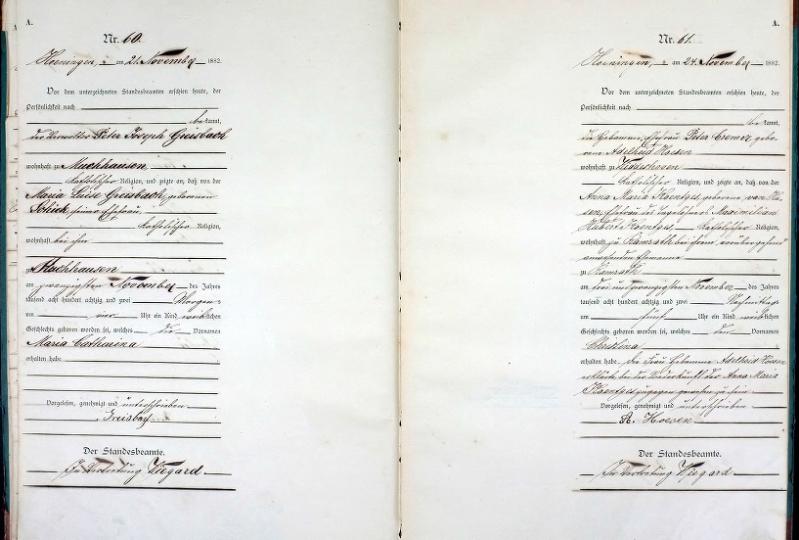 A.
Nr. 60.
Hoeningen, am 21. November 1882.
Vor dem unterzeichneten Standesbeamten erschien heute, der
Persönlichkeit nach
bekannt,
der Peter Joseph Greisbach
wohnhaft zu Muchhausen
katholischer Religion, und zeigte an, daß von der
Maria Luise Greisbach geborenen
Schick, seiner Ehefrau
katholischer Religion,
wohnhaft bei ihm
zu Muchhausen
am zwanzigsten November des Jahres
tausend acht hundert achtzig und zwei Morgens
um vier Uhr ein Kind weiblichen
Geschlechts geboren worden sei, welches die Vornamen
Maria Catharina
erhalten habe.
Vorgelesen, genehmigt und unterschrieben
Greisbach
Der Standesbeamte.
In Vertretung Wiegard
A.
Nr. 61.
Hoeningen, am 24. November 1882.
Vor dem unterzeichneten Standesbeamten erschien heute, der
Persönlichkeit nach
bekannt,
die Hebamme, Ehefrau Peter Cremer, gebo-
rene Adelheid Hoesen
wohnhaft zu
katholischer Religion, und zeigte an, daß von der
Anna Maria Koentges geborene
Ehefrau des Maximilian
Hubert Koentges, katholischer Religion,
wohnhaft zu Ramrath bei ihrem, vorübergehend
abwesenden Ehemanne
zu Ramrath
am drei und zwanzigsten November des Jahres
tausend acht hundert achtzig und zwei Nachmittags
um fünf Uhr ein Kind weiblichen
Geschlechts geboren worden sei, welches den Vornamen
Christina
erhalten habe. Die Frau Hebamme Adelheid Hoesen
erklärte bei der Niederkunft der Anna Maria
Koentges zugegen gewesen zu sein
Vorgelesen, genehmigt und unterschrieben
A. Hoesen
Der Standesbeamte.
In Vertretung Wiegard